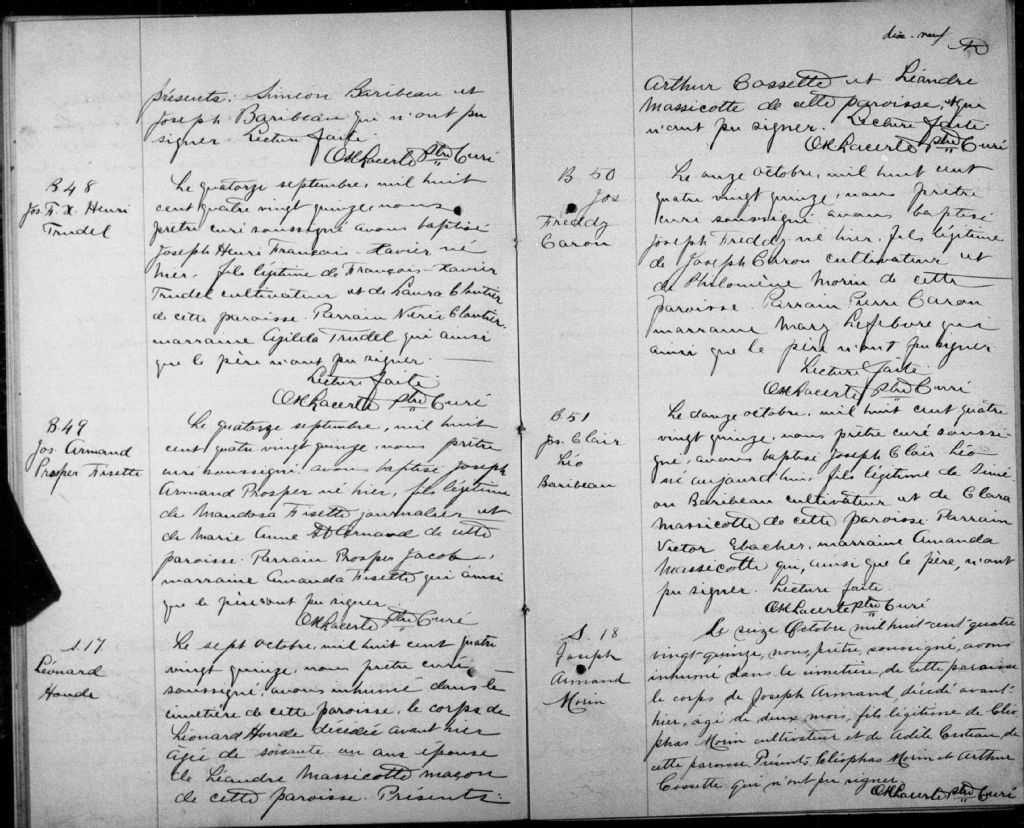 présents: Siméon Baribeau et
Joseph Baribeau qui n'ont pu
signer. Lecture faite
Lacerte Ptre Curé
B 48
Jos. F. X. Henri
Trudel
Le quatorze septembre, mil huit
cent quatre vingt quinze, nous
prêtre curé soussigné avons baptisé
Joseph Henri François-Xavier né
hier, fils légitime de François-Xavier
Trudel cultivateur et de Laura Cloutier
de cette paroisse. Parrain Nérée Cloutier,
marraine Agilda Trudel qui ainsi
que le père n'ont pu signer.
Lecture faite
Lacerte Ptre Curé
B 49
Jos. Armand
Prosper Fisette
Le quatorze septembre, mil huit
cent quatre vingt quinze, nous prêtre
curé soussigné, avons baptisé Joseph
Armand Prosper né hier, fils légitime
de Mandosa Fisette journalier et
de Marie Anne St Arnaud de cette
paroisse. Parrain Prosper Jacob,
marraine Amanda Fisette qui ainsi
que le père n'ont pu signer
Lacerte Ptre Curé
S. 17
Léonard
Houde
Le sept octobre, mil huit cent quatre
vingt quinze, nous prêtre curé
soussigné, avons inhumé dans le
cimetière de cette paroisse, le corps de
Léonard Houde décédée avant hier
âgée de soisante un ans épouse
de Léandre Massicotte maçon
de cette paroisse. Présents:
dix-neuf
Arthur Cossette et Léandre
Massicotte de cette paroisse, qui
n'ont pu signer. Lecture faite
Lacerte Ptre Curé
B 50
Jos
Freddy
Caron
Le onze octobre, mil huit cent
quatre vingt quinze, nous prêtre
curé soussigné avons baptisé
Joseph Freddy né hier, fils légitime
de Joseph Caron cultivateur et
de Philomène Morin de cette
paroisse. Parrain Pierre Caron
marraine Mary Lefebvre qui
ainsi que le père n'ont pu signer
Lecture faite
Lacerte Ptre Curé
B 51
Jos. Clair
Léo
Baribeau
Le douze octobre, mil huit cent quatre
vingt quinze, nous prêtre curé soussi-
gné, avons baptisé Joseph Clair Léo
né aujourd'hui, fils légitime de Simé-
on Baribeau cultivateur et de Clara
Massicotte de cette paroisse. Parrain
Victor Ebacher, marraine Amanda
Massicotte qui, ainsi que le père, n'ont
pu signer. Lecture faite
Lacerte Ptre Curé
S. 18
Joseph
Armand
Morin
Le seize Octobre mil huit-cent-quatre
vingt-quinze, nous, prêtre, soussigné, avons
inhumé dans le cimetière de cette paroisse
le corps de Joseph Armand, décédé avant-
hier, âgé de deux mois, fils légitime de Cléo-
phas Morin cultivateur et de Adèle Cosseau de
cette paroisse. Présents Cléophas Morin et Arthur
Cossette qui n'ont pu signer.
Lacerte Ptre Curé